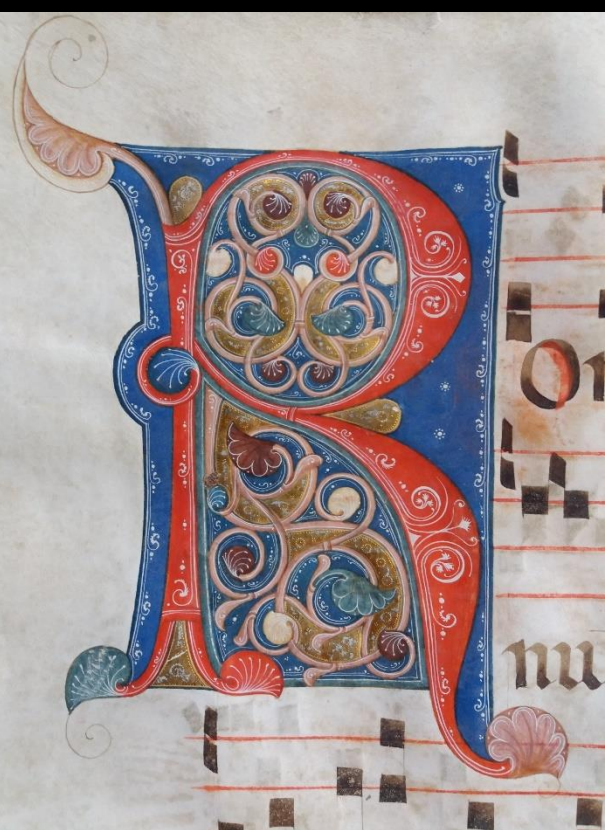 Ror
nu